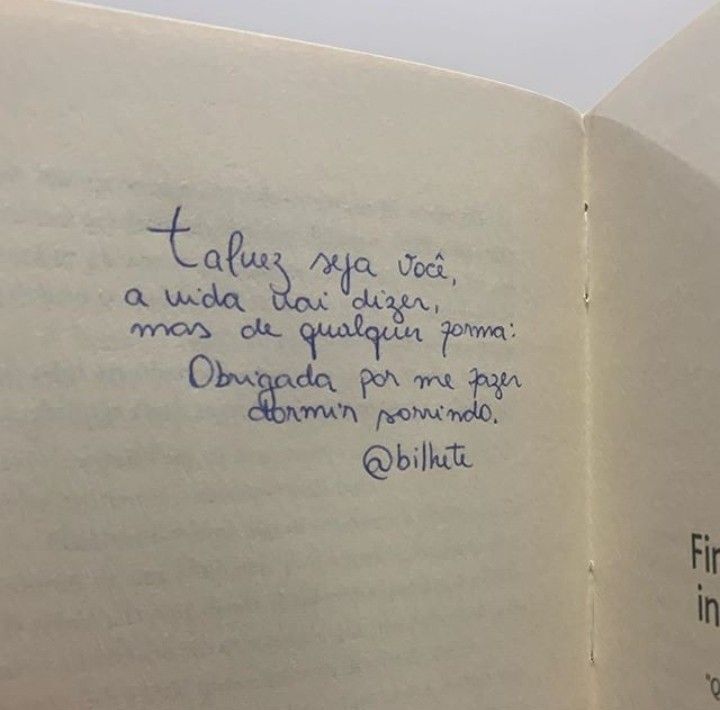 Talvez seja você,
a vida vai dizer,
mas de qualquer forma:
Obrigada por me fazer
dormir sorrindo.
@bilhete
Fir
in